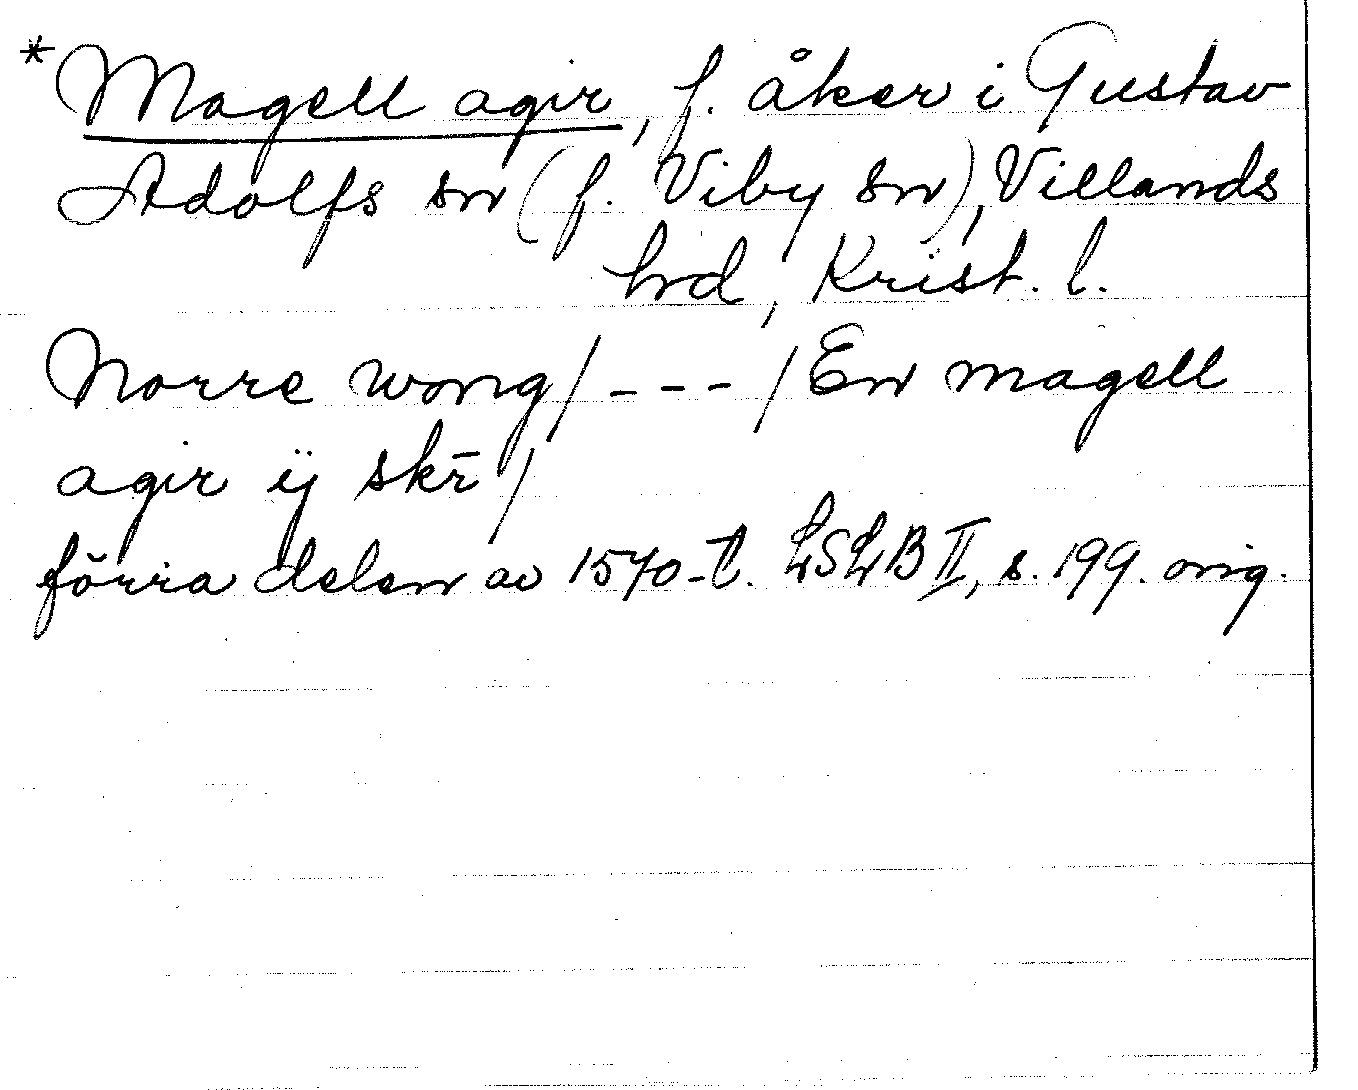 *Magell agir, f. åker i Gustav
Adolfs sn (f. Viby sn), Villands
hrd, Krist. l.
Norre wong / - - - / En magell
agir ij skr̄ /
förra delen av 1570-t. LSLB II, s. 199. orig.